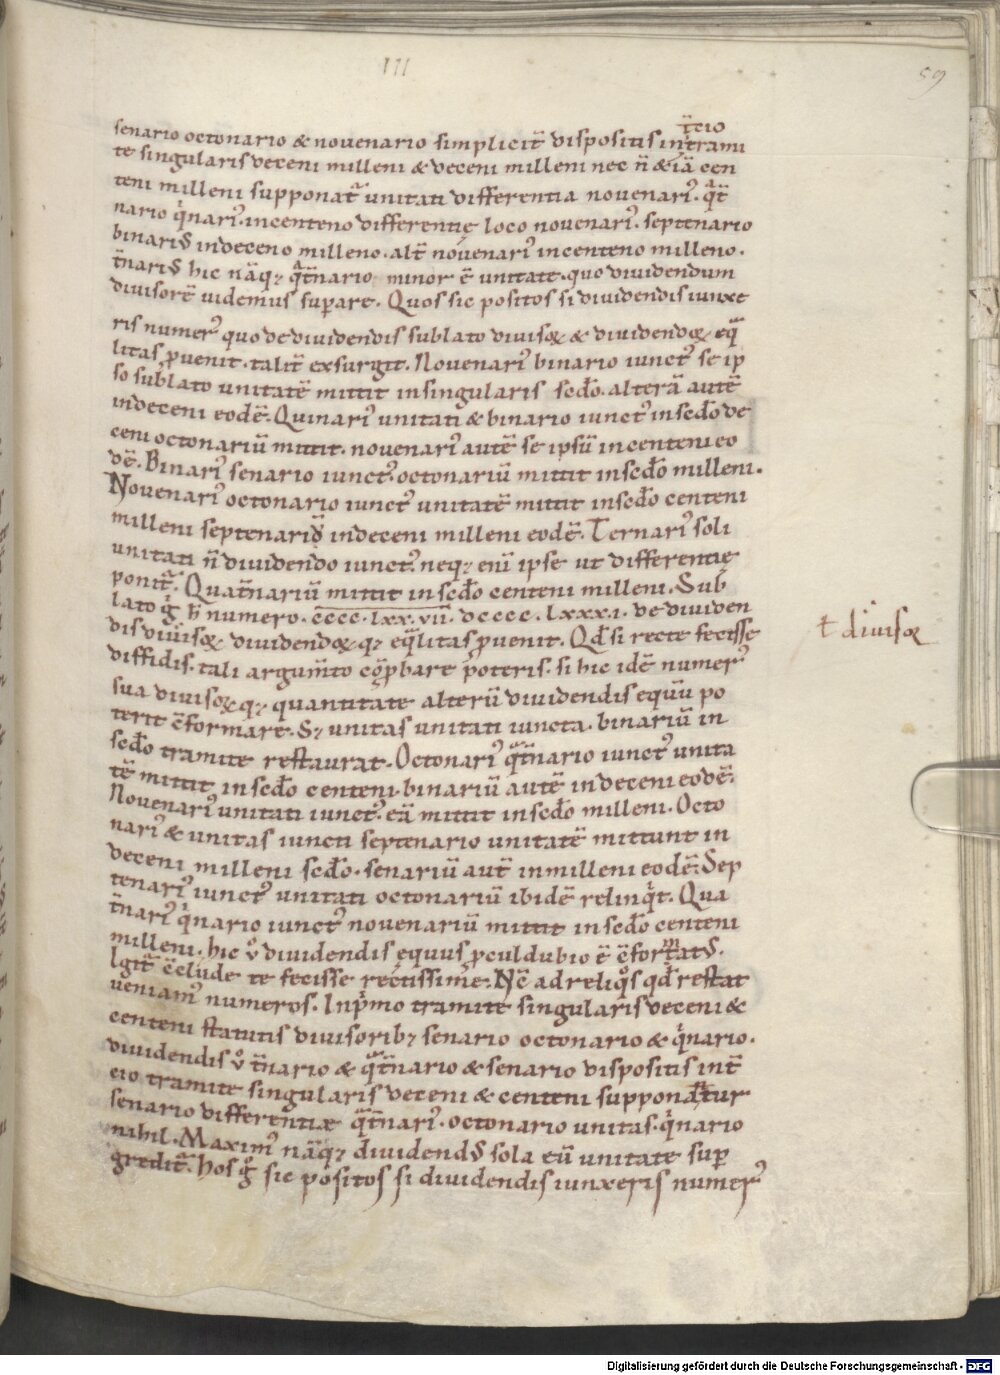 III
59
t̄cio
senario octonario & novenario simplicit̄ dispositis in trami
te singularis deceni milleni & deceni milleni nec n̄ & iā cen
teni milleni supponat᷑ unitati differentia novenari᷒. q̄t̄
nario q̍nari᷒. in centeno differentię loco novenari᷒. septenario
binari᷒ in deceno milleno. alt̄ novenari᷒ in centeno milleno.
t̄nari᷒ hic nāq; q̄t̄nario minor ē unitate. quo dividendum
divisorē videmus supare. Quos sic positos si dividendis iunxe
ris numer᷒ quo de dividendis sublato divisoꝝ & dividendoꝝ eq̄
litas ꝓvenit. talit̄ exsurgit. Novenari᷒ binario iunct᷒ se ip
so sublato unitatē mittit in singularis scđo. alterā autē
in deceni eodē. Quinari᷒ unitati & binario iunct᷒ in scđo de
ceni octonariū mittit. novenari᷒ autē se ipsū in centeni eo
dē. Binari᷒ senario iunct᷒. octonariū mittit in scđo milleni.
Novenari᷒ octonario iunct᷒ unitatē mittit in scđo centeni
milleni septenariū in deceni milleni eodē. Ternari᷒ soli
unitati n̄ dividendo iunct᷒. neq; enī ipse ut differentię
ponit᷑. Quat̄nariū mittit in scđo centeni milleni. Sub
lato g̊ h̄ numero. c̄c̄c̄c̄. l̄x̄x̄. v̄īī. dcccc. lxxxi. de dividen
dis divisoꝝ dividendoꝝ q; eq̄litas ꝓvenit. Qđ si recte fecisse
diffidis. tali argum̄to cōꝓbare poteris. si hic idē numer᷒
sua divisoꝝ q; quantitate alterū dividendis equū po
terit c̄formare. S; unitas unitati iuncta. binariū in
scđo tramite restaurat. Octonari᷒ q̄t̄nario iunct᷒ unita
tē mittit in scđo centeni. binariū autē in deceni eodē.
Novenari᷒ unitati iunct᷒. eā mittit in scđo milleni. Octo
nari᷒ & unitas iuncti septenario unitatē mittunt in
deceni milleni scđo. senariū aut̄ in milleni eodē. Sep
tenari᷒ iunct᷒ unitati octonariū ibidē relinq̍t. Qua
t̄nari᷒ q̍nario iunct᷒ novenariū mittit in scđo centeni
milleni. hic v̊ dividendis equus ꝓculdubio ē c̄format᷒.
Igit᷑ c̄clude te fecisse rectissime. Nc̄ ad reliq̊s qđ restat
veniam᷒ numeros. In p̍mo tramite singularis deceni &
centeni statutis divisorib; senario octonario & q̍nario.
dividendis v̊ t̄nario & q̄t̄nario & senario dispositis in t̄
cio tramite singularis deceni & centeni supponatur
senario differentiæ q̄t̄nari᷒. octonario unitas. q̍nario
nihil. Maxim᷒ nāq; dividend᷒ sola eū unitate sup
gredit᷑. hos g̊ sic positos si dividendis iunxeris numer᷒
ł divisoꝝ
Digitalisierung gefördert durch die Deutsche Forschungsgemeinschaft - DFG